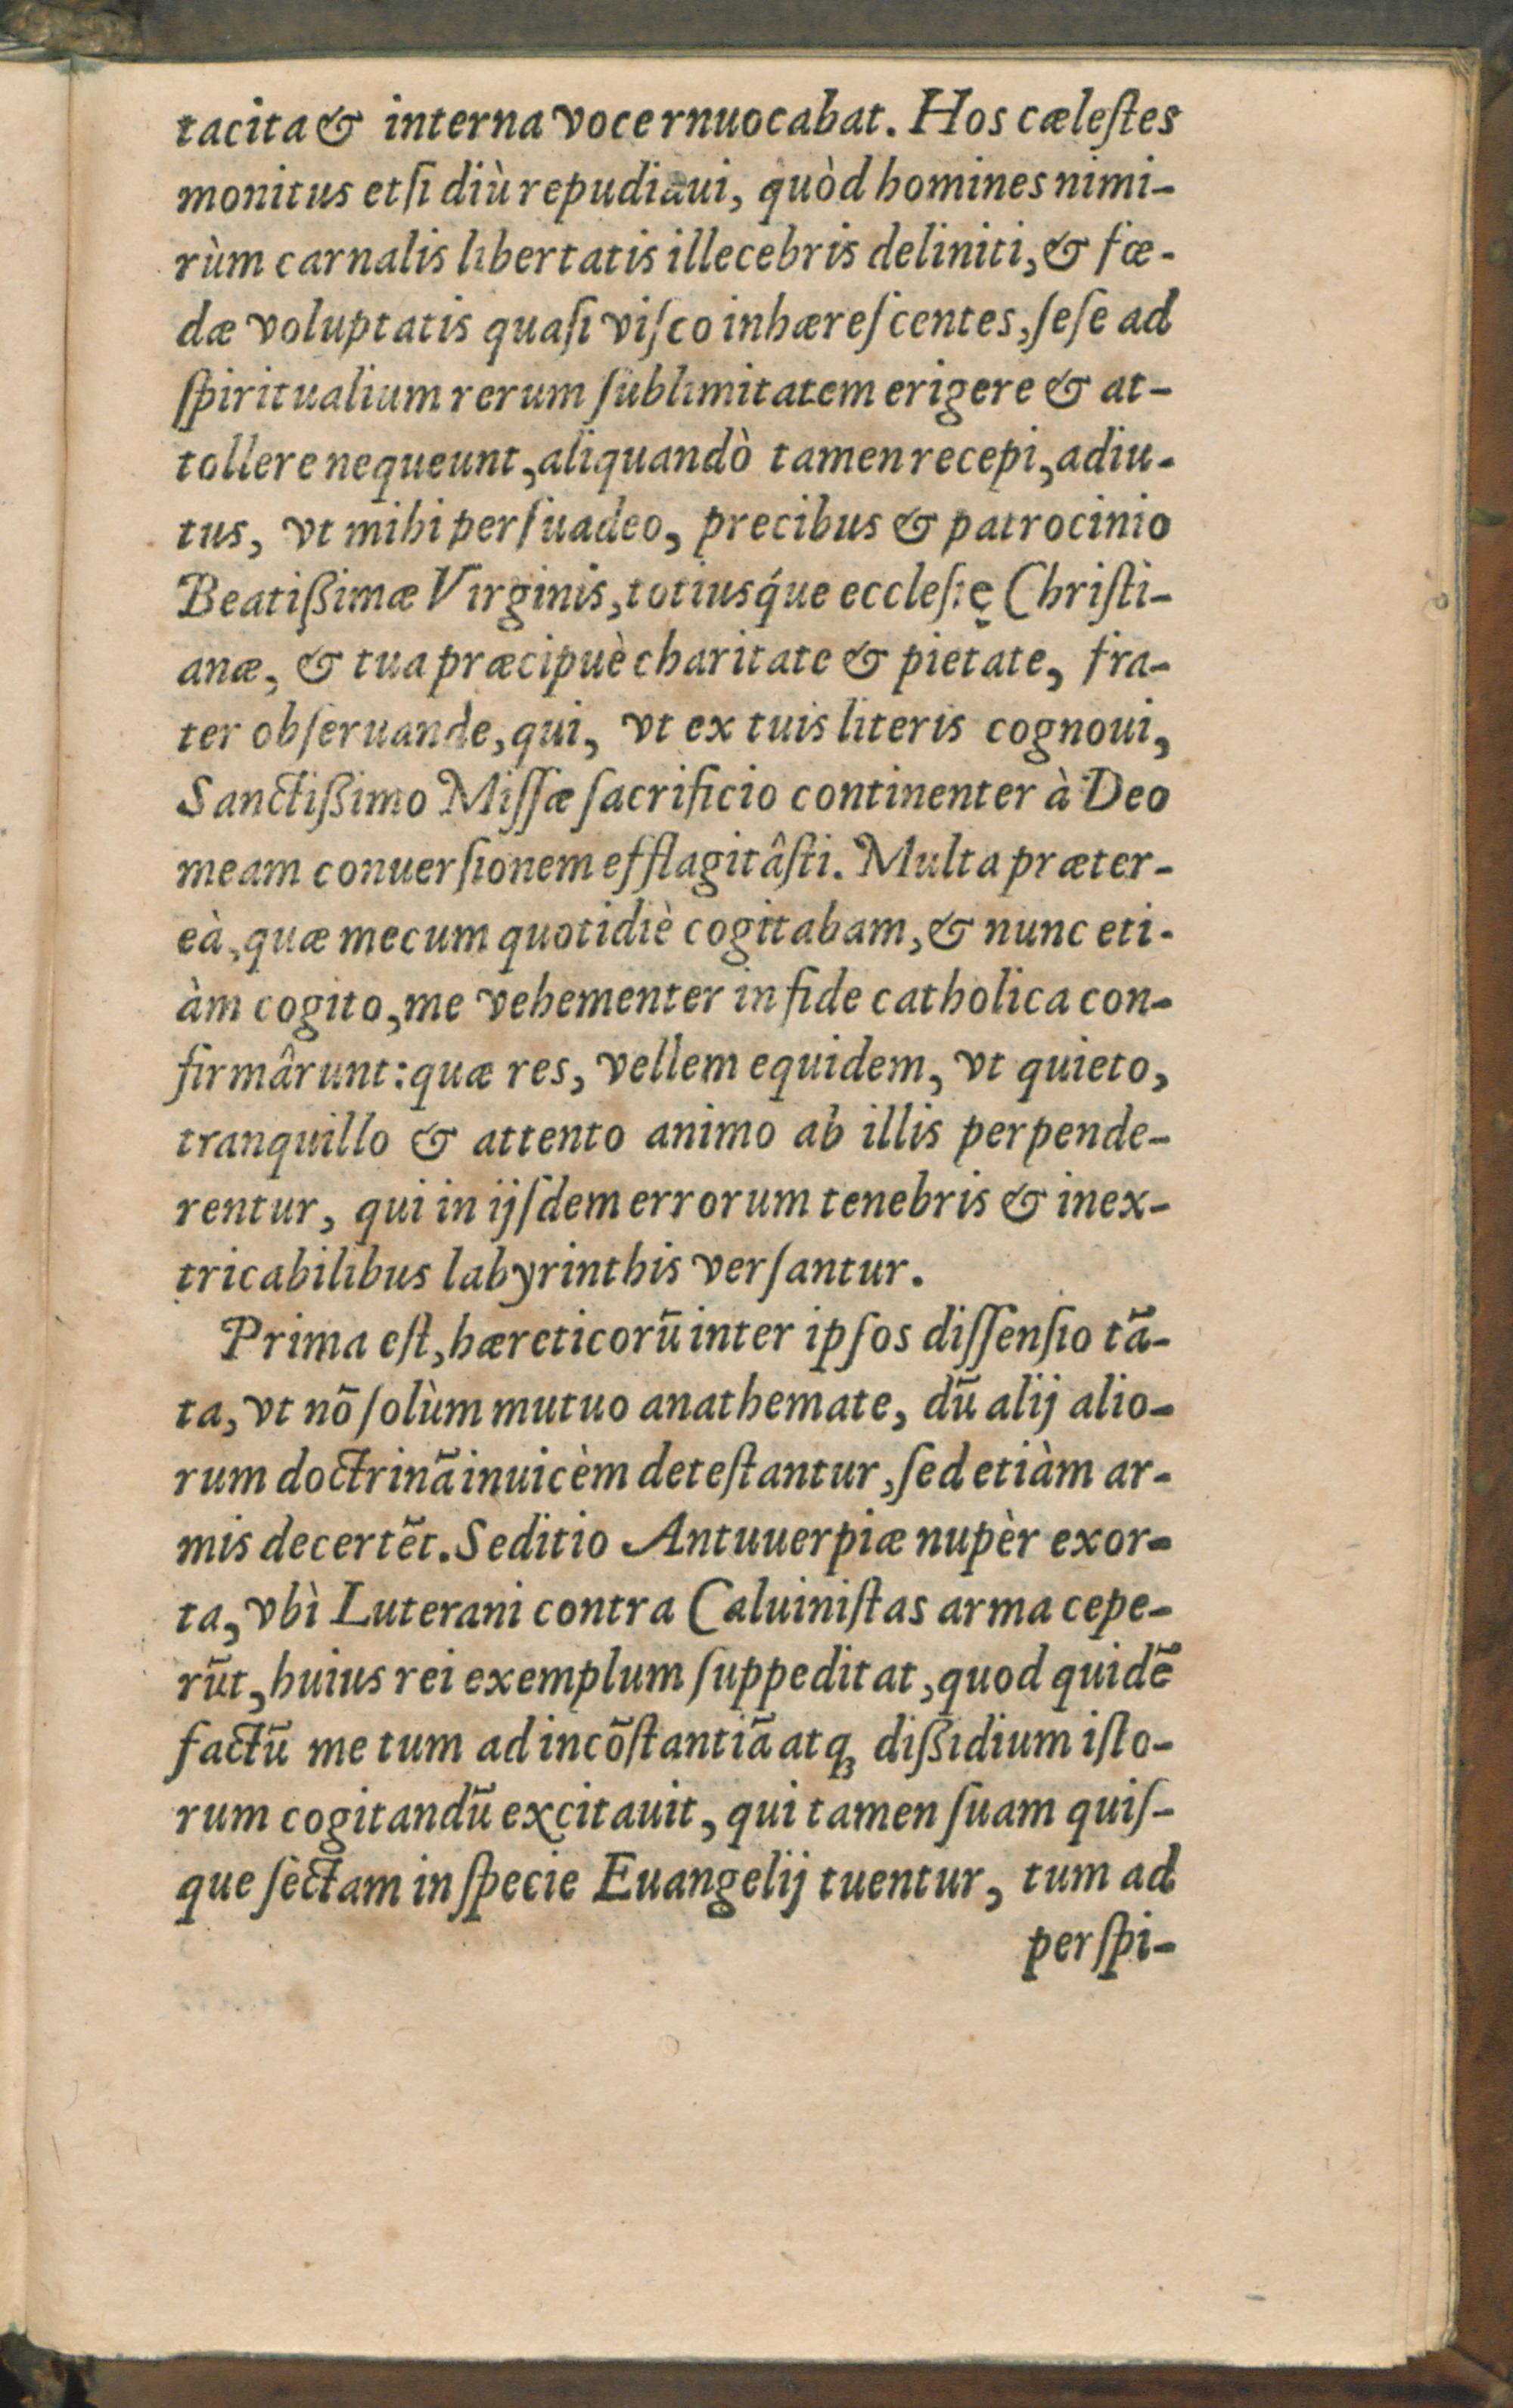 tacita & interna voce rnuocabat. Hos cælestes
monitus etsi diù repudiaui, quòd homines nimi-
rùm carnalis libertatis illecebris deliniti, & fœ-
dæ voluptatis quasi visco inhærescentes, sese ad
spiritualium rerum sublimitatem erigere & at-
tollere nequeunt, aliquandò tamen recepi, adiu-
tus, vt mihi persuadeo, precibus & patrocinio
Beatißimæ Virginis, totiusq́ue ecclesię Christi-
anæ, & tua præcipuè charitate & pietate, fra-
ter obseruande, qui, vt ex tuis literis cognoui,
Sanctißimo Missæ sacrificio continenter à Deo
meam conuersionem efflagitâsti. Multa præter-
eà, quæ mecum quotidiè cogitabam, & nunc eti-
àm cogito, me vehementer in fide catholica con-
firmârunt: quæ res, vellem equidem, vt quieto,
tranquillo & attento animo ab illis perpende-
rentur, qui in ijsdem errorum tenebris & inex-
tricabilibus labyrinthis versantur.
Prima est, hæreticorũ inter ipsos dissensio tã-
ta, vt nõ solùm mutuo anathemate, dũ alij alio-
rum doctrinã inuicèm detestantur, sed etiàm ar-
mis decertẽt. Seditio Antuuerpiæ nupèr exor-
ta, vbì Luterani contra Caluinistas arma cepe-
rũt, huius rei exemplum suppeditat, quod quidẽ
factũ me tum ad incõstantiã atq; dißidium isto-
rum cogitandũ excitauit, qui tamen suam quis-
que sectam in specie Euangelij tuentur, tum ad
perspi-